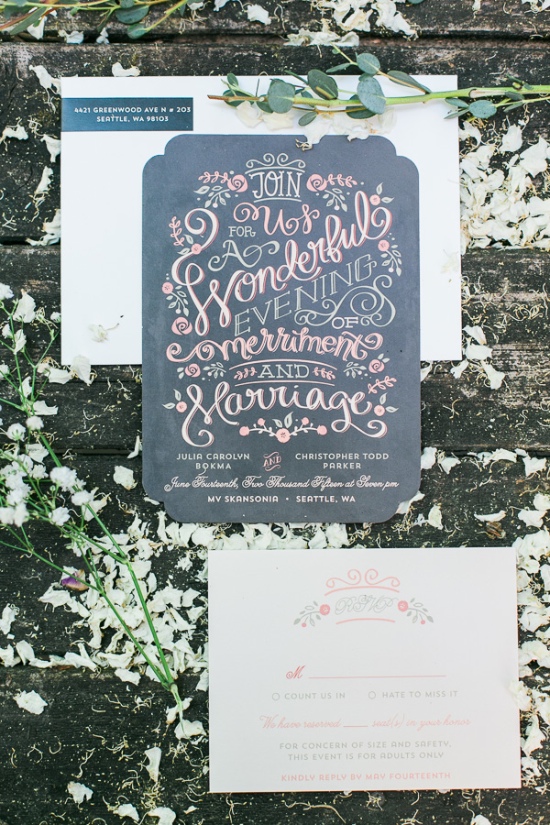 4421 GREENWOOD AVE N # 203
SEATTLE, WA 98103
JOIN
US
FOR
A
Wonderful
EVENING
OF
merriment
AND
Marriage
JULIA CAROLYN AND CHRISTOPHER TODD
BOKMA PARKER
June Fourteenth, Two Thousand Fifteen at Seven pm
MV SKANSONIA • SEATTLE, WA
RSVP
M
COUNT US IN HATE TO MISS IT
We have reserved ____ seat(s) in your honor
FOR CONCERN OF SIZE AND SAFETY,
THIS EVENT IS FOR ADULTS ONLY
KINDLY REPLY BY MAY FOURTEENTH